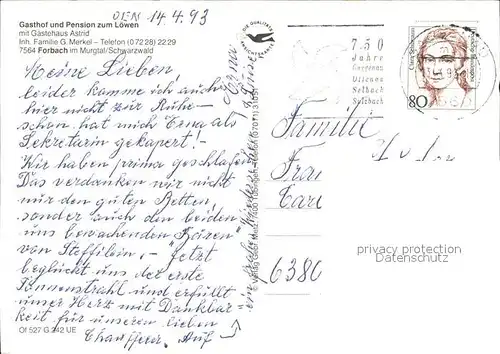 Gasthof und Pension zum Löwen
mit Gästehaus Astrid
Inh. Familie G. Merkel – Telefon (0 72 28) 22 29
7564 Forbach im Murgtal/Schwarzwald
14.4.93
Meine Lieben,
leider komme ich auch
hier nicht zur Ruhe –
schon hat mich Erna als
Sekretärin gekapert! –
Wir haben prima geschlafen
Das verdanken wir nicht
nur den guten Betten,
sonder auch den beiden
uns bewachenden Bären"
von Steffilein. – Jetzt
beglückt uns der erste
Sonnenstrahl und erfüllt
unser Herz mit Dankbar
keit für unseren lieben
Chauffeur. Auf
ein frohes Wiedersehen
Erna
Of 527 G 242 UE
DIE QUALITÄTS
750
Jahre
Gaggenau
Ottenau
Selbach
Sulzbach
80
Familie
Frau
6380
privacy protection
Datenschutz